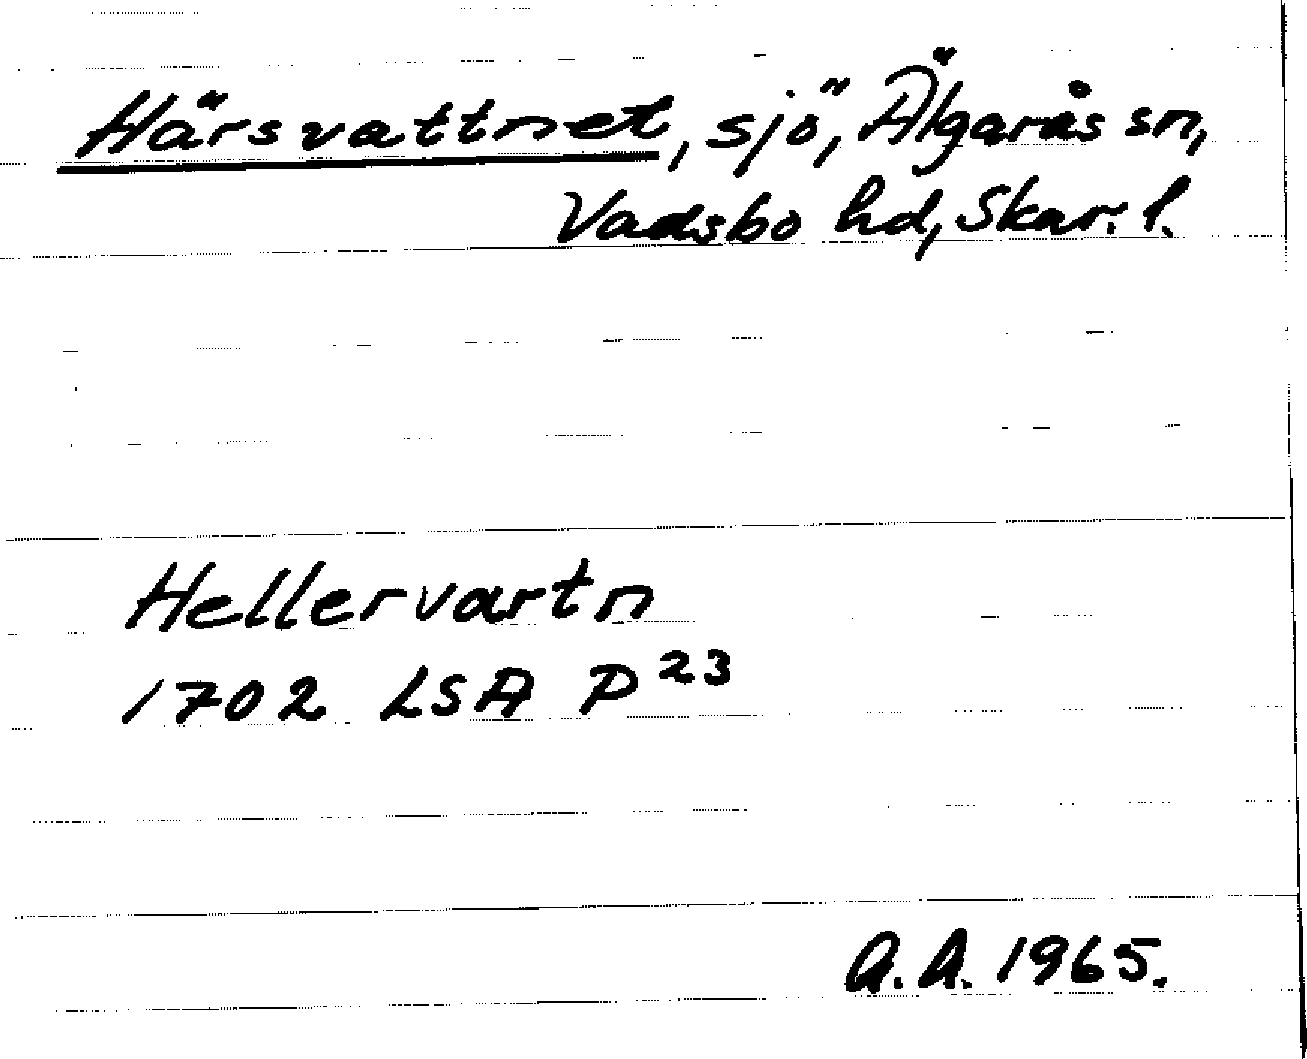 Härsvattnet, sjö, Älgarås sn,
Vadsbo hd, Skar. l.
Hellervartn
1702 LSA P 23
A.A. 1965.